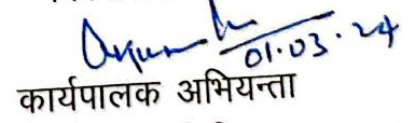 01.03.24
कार्यपालक अभियन्ता